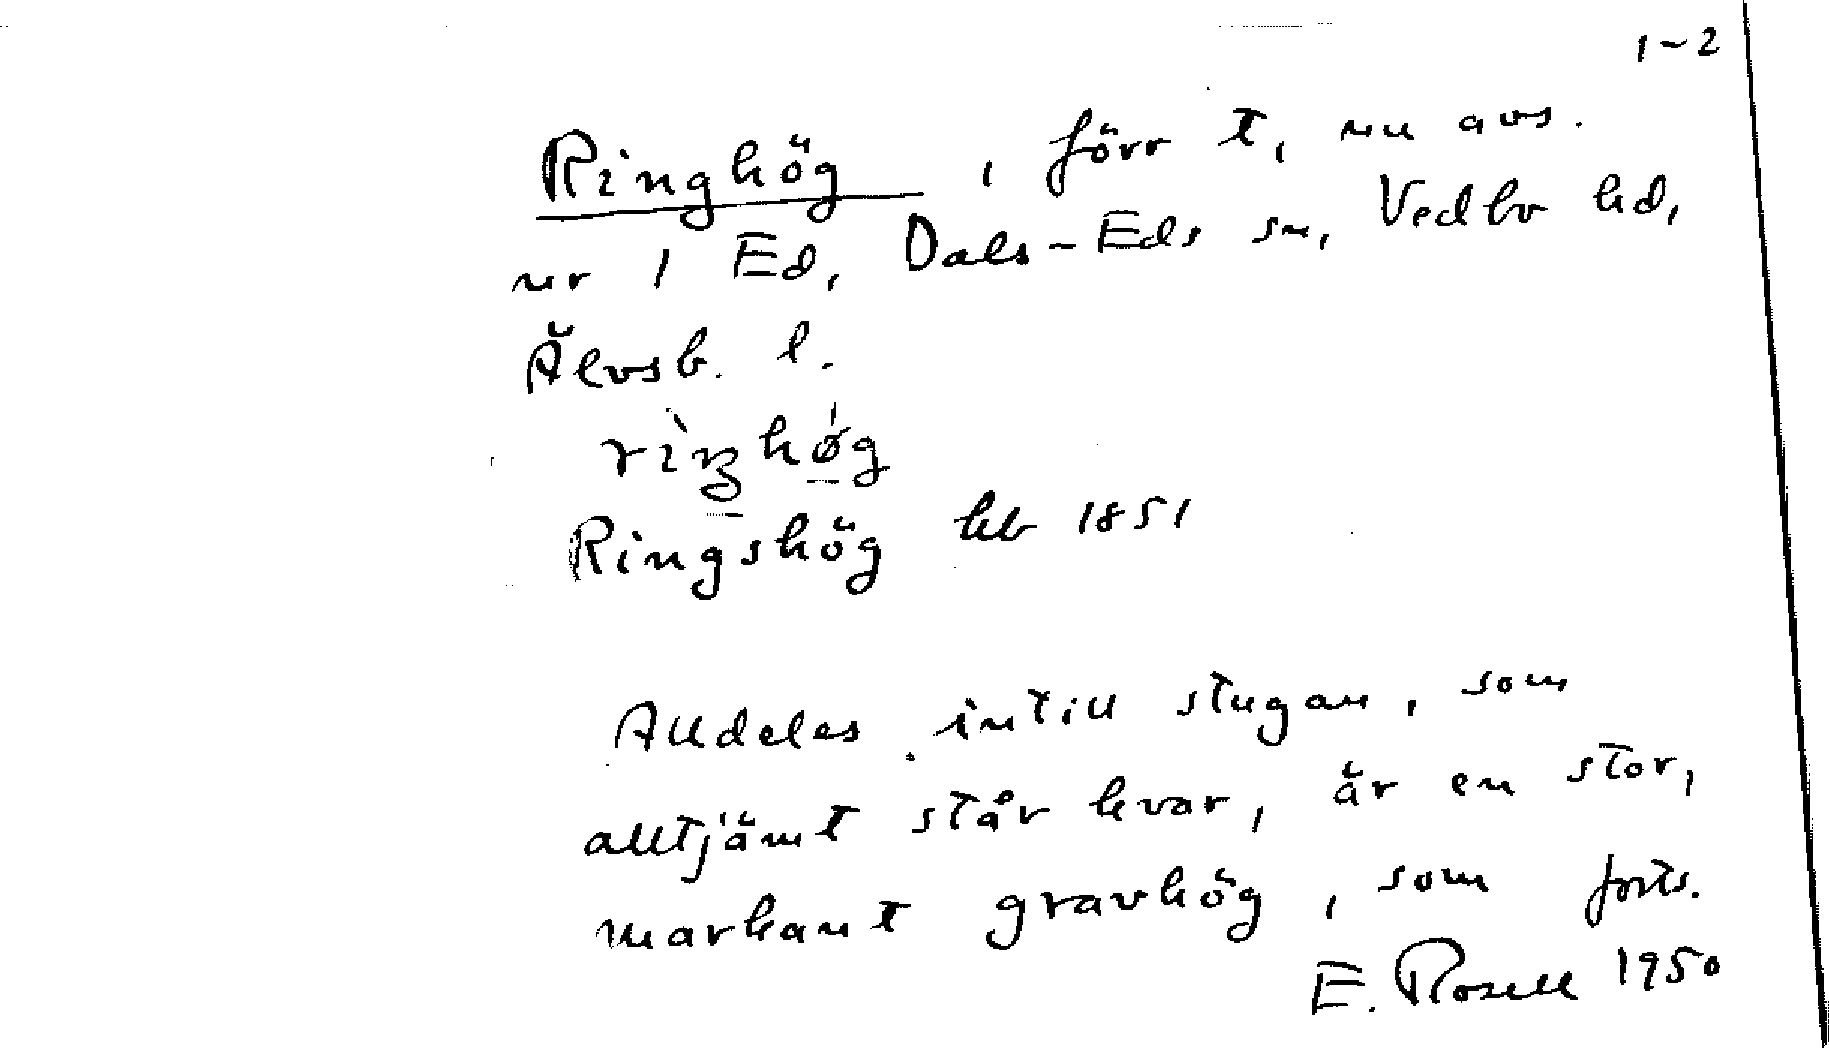 1-2
Ringhög, förr t, nu avs.
nr 1 Ed, Dals-Eds sn, Vedbo hd,
Älvsb. l.
Ringshög hb 1851
Alldeles intill stugan, som
alltjämt står kvar, är en stor,
markant gravhög, som forts.
E. Rosell 1950